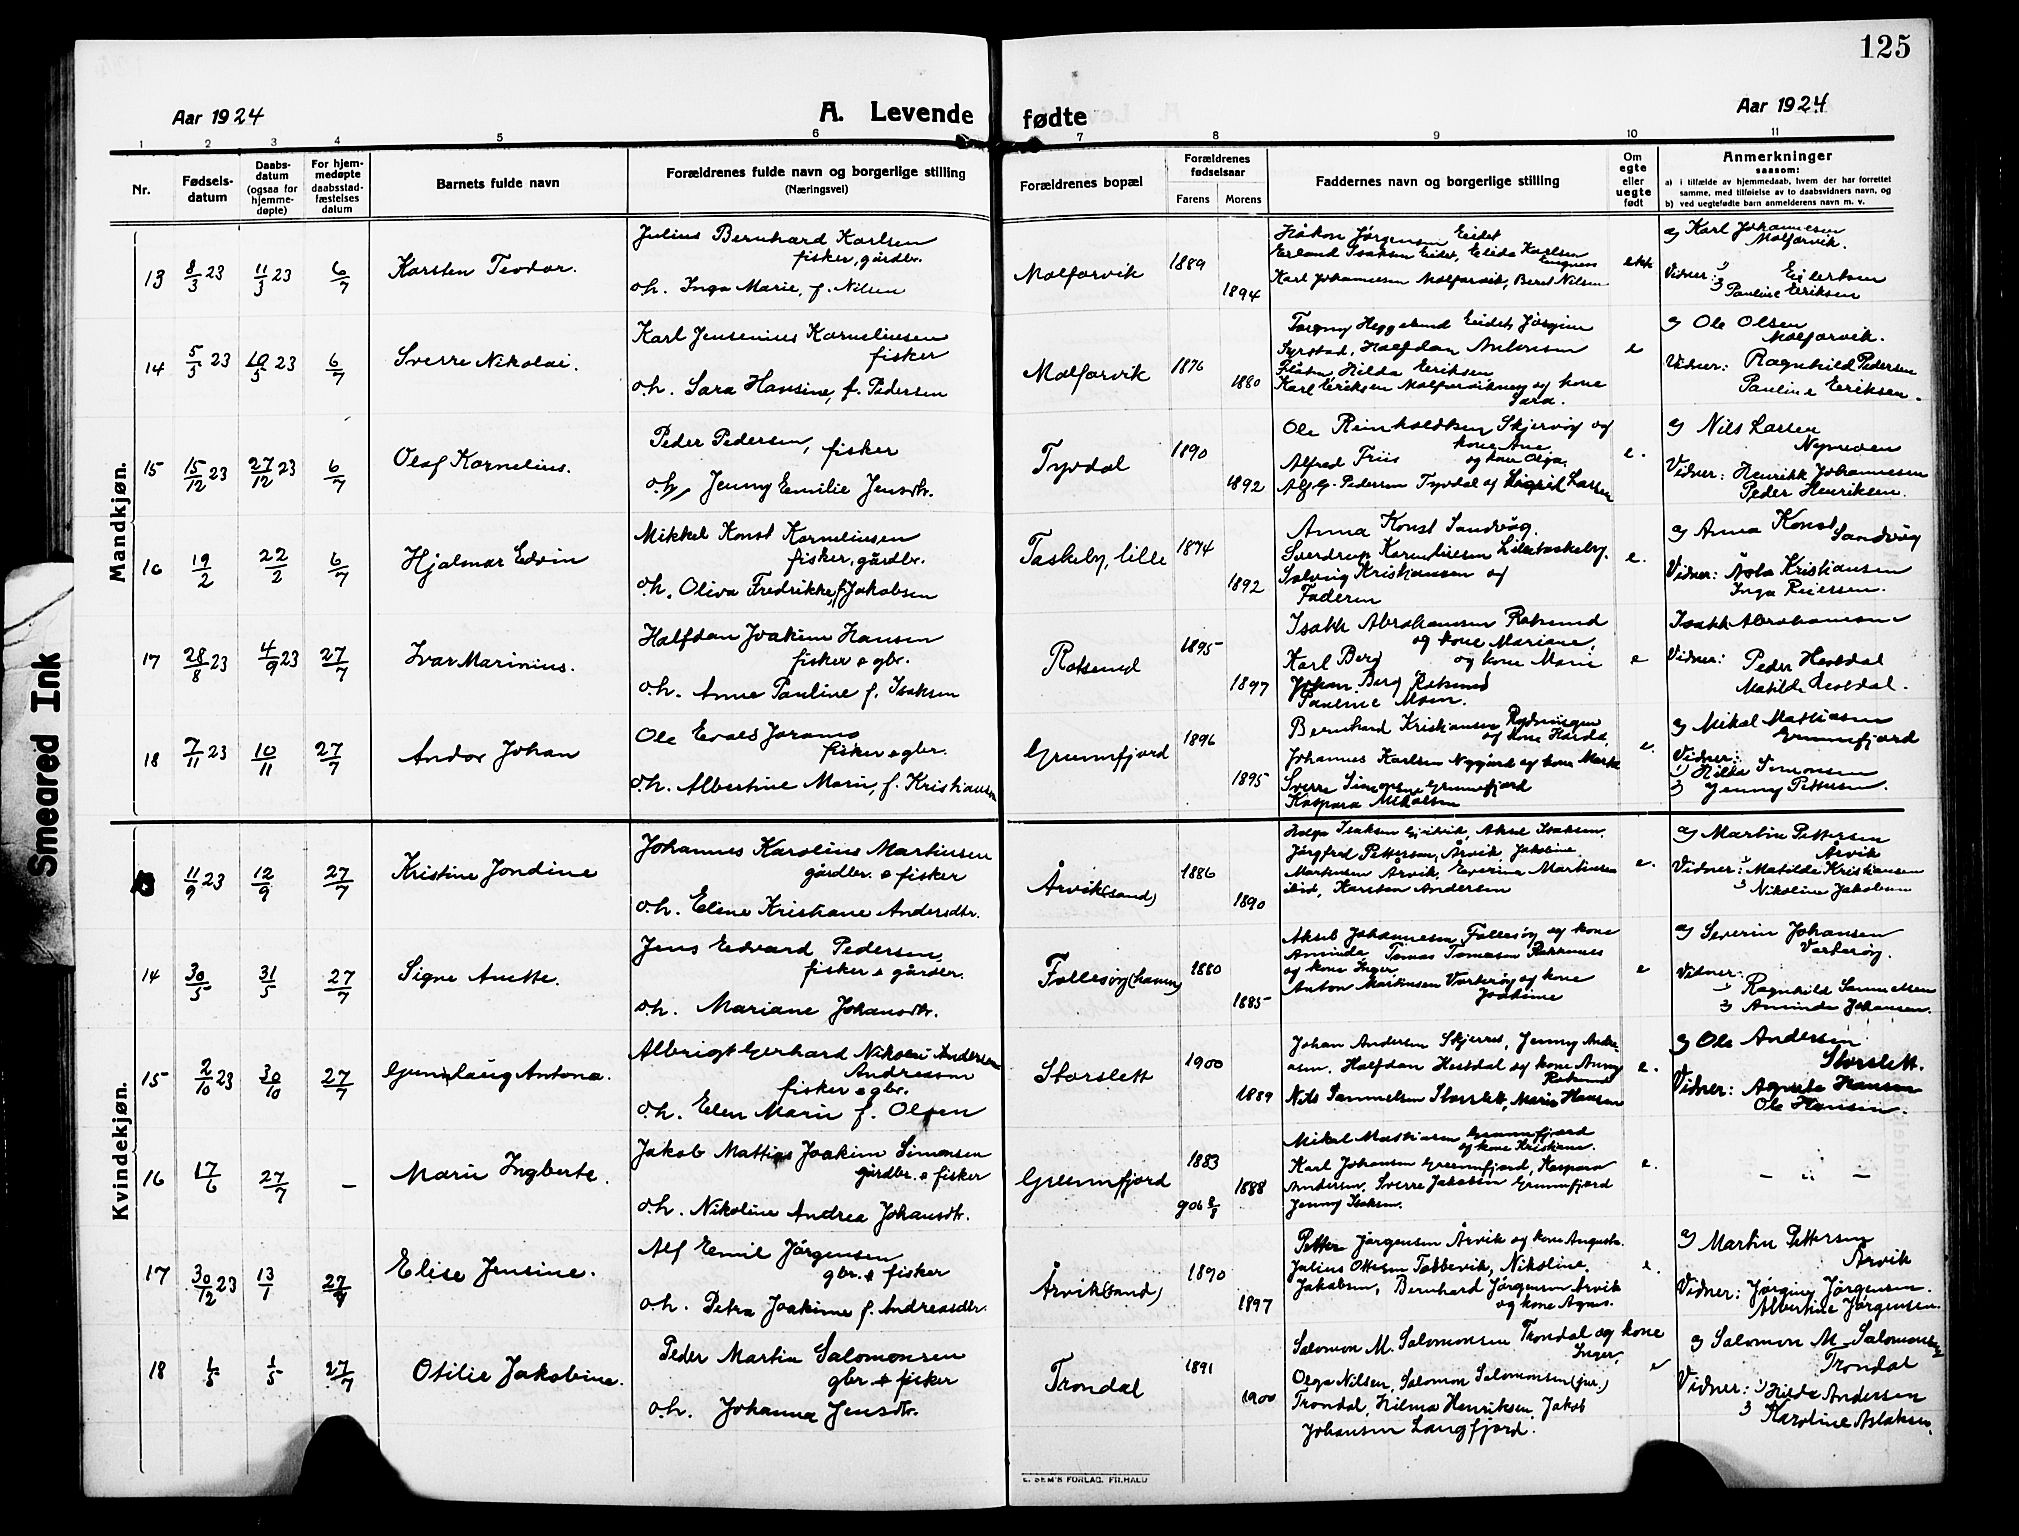 125
Aar 1924
A. Levende fødte
Aar 1924
1 2 3 4 5 6 7 8 9 10 11
Nr.
Fødsels-
datum
Daabs-
datum
(ogsaa for
hjemme-
døpte)
For hjem-
medøpte
daabsstad-
fæstelses
datum
Barnets fulde navn
Forældrenes fulde navn og borgerlige stilling
(Næringsvei)
Forældrenes bopæl
Forældrenes
fødselsaar
Farens Morens
Faddernes navn og borgerlige stilling
Om
egte
eller
uegte
født
Anmerkninger
saasom:
a) i tilfælde av hjemmedaab, hvem der har forrettet
samme, med tilføielse av to daabsvidners navn, og
b) ved uegtefødte barn anmelderens navn m. v.
Mandkjøn.
13 8/3 23 11/3 23 6/7 Karsten Teodor.
Julius Bernhard Karlsen
fisker, gårdbr.
o.h. Inga Marie, f. Nilsen
Molforvik 1889 1894
Håkon Jørgensen Eidet
Erland Isaksen Eidet, Elida Karlsen
Karl Johannesen Molforvik, Beret Nilsen
ekte
a) Karl Johannesen
Molforvik.
Vidner: 1) Eilertsen
2) Pauline Eriksen
14 5/5 23 10/5 23 6/7 Sverre Nikolai.
Karl Jensenius Korneliussen
fisker
o.h. Sara Hansine, f. Pedersen
Molforvik 1876 1880
Torgny Heggelund Eidet, Jørgine
Syrstad, Halfdan Antonsen
Hilda Eriksen
Karl Eriksen Molforvikney og kone
Sara.
e
a) Ole Olsen
Molforvik.
Vidner: Ragnhild Pedersen
Pauline Eriksen.
15 15/12 23 27/12 23 6/7 Olaf Kornelius.
Peder Pedersen, fisker
o.h. Jenny Emilie Jensdtr.
Tyvdal 1890 1892
Ole Reinholdtsen Skjervøy og
kone Ane
Alfred Friis og kone Olga.
Alf G. Pedersen Tyvdal og Sigrid Larsen
e.
a) Nils Larsen
Vidner: Henrikk Johannesen
Peder Henriksen.
16 19/2 22/2 6/7 Hjalmar Edvin
Mikkel Konst Korneliussen
fisker, gårdbr.
o.h. Oliva Fredrikke, f. Jakobsen
Taskeby, lille 1874 1892
Anna Konst Sandvåg.
Sverdrup Korneliussen Lilletaskeby.
Solveig Kristiansen og
Faderen
e.
a) Anna Konst Sandvåg
Vidner: Åsla Kristiansen
Inga Reiersen.
17 28/8 23 4/9 23 27/7 Ivar Marinius.
Halfdan Joakim Hansen
fisker o gbr.
o.h. Anne Pauline f. Isaksen
Rotsund 1895 1897
Isakk Abrahamsen Rotsund
og kone Mariane,
Karl Berg og kone Marie
Johan Berg Rotsund
Pauline Moen.
e
Isakk Abrahamsen
Vidner: Peder Hestdal
Matilde Hestdal.
18 7/11 23 10/11 27/7 Andor Johan
Ole Evald Joramo
fisker o gbr.
o.h. Albertine Marie, f. Kristiansen
Grunnfjord 1896 1895
Bernhard Kristiansen Rydningen
og kone Harda,
Johannes Karlsen Nygård og kone Marta
Sverre Simonsen Grunnfjord
Kaspara Mikalsen
e.
a) Mikal Mathiasen
Grunnfjord
Vidner:
1) Hilda Simonsen
2) Jenny Pettersen.
Kvindekjøn.
13 11/9 23 12/9 27/7 Kristine Jondine
Johannes Karolius Martinsen
gårdbr. o fisker
o.h. Eline Kristiane Andersdtr.
Årvik(sand) 1886 1890
Helga Isaksen Geitvik, Aksel Isaksen.
Jørgfred Pettersen, Årvik, Jakobine
Martinsen Årvik, Everine Martinsen
ibid, Karsten Andersen
e.
a) Martin Pettersen
Årvik
Vidner: 1) Matilde Kristiansen
2) Nikoline Jakobsen
14 30/5 31/5 27/7 Signe Anette.
Jens Edvard Pedersen
fisker o gårdbr.
o.h. Mariane Johansdtr.
Follesøy(havn) 1880 1885
Aksel Johannesen Follesøy og kone
Aminda Tomas Tomasen Rakkenes
og kone Inger
Anton Martinsen Vorterøy og kone
Joakime
e
a) Severin Johansen
Vorterøy.
Vidner:
1) Ragnhild Samuelsen
2) Aminda Johansen.
15 2/10 23 30/10 27/7 Gunnlaug Antona.
Albrigt Gerhard Nikolai Andersen
Andreassen
fisker o gbr.
o.h. Elen Marie f. Olsen
Storslett 1900 1889
Johan Andersen Skjerrvø, Jenny Andre-
asen, Halfdan Hestdal og kone Anny
Rotsund
Nils Sammelsen Storslett, Marie Hansen
e.
a) Ole Andersen
Storslett.
Vidner: Agnete Hansen
Ole Hansen.
16 17/6 27/7 — Marie Ingberte.
Jakob Mattias Joakim Simonsen
gårdbr. o fisker
o.h. Nikoline Andrea Johansdtr.
Grunnfjord 1883 1888
Mikal Mathiasen Grunnfjord
og kone Kristiane
Karl Johansen Grunnfjord, Kaspara
Andersen, Sverre Jakobsen Grunnfjord
Jenny Isaksen.
e.
— „ —
17 30/12 23 13/1 27/7 Elise Jensine.
Alf Emil Jørgensen
gbr. o fisker
o.h. Petra Joakime f. Andreasdtr.
Årvik(sand) 1890 1897
Petter Jørgensen Årvik og kone Augusta
Julius Ottesen Tabbevik, Nikoline
Jakobsen, Bernhard Jørgensen Årvik
og kone Agnes.
e.
a) Martin Pettersen
Årvik
Vidner: Jørginy Jørgensen.
Albertine Jørgensen.
18 1/5 1/5 27/7 Otilie Jakobine.
Peder Martin Salomonsen
gbr. o fisker
o.h. Johanna Jensdtr.
Trondal 1891 1900
Salomon M. Salomonsen Trondal og kone
Inger,
Olga Nilsen, Salomon Salomonsen(jur.)
Trondal, Hilma Henriksen, Jakob
Johansen Langfjord.
e
a) Salomon M. Salomonsen
Trondal
Vidner: 1) Hilda Andersen
2) Karoline Aslaksen.
E. SEM'S FORLAG, FR.HALD
Smeared Ink